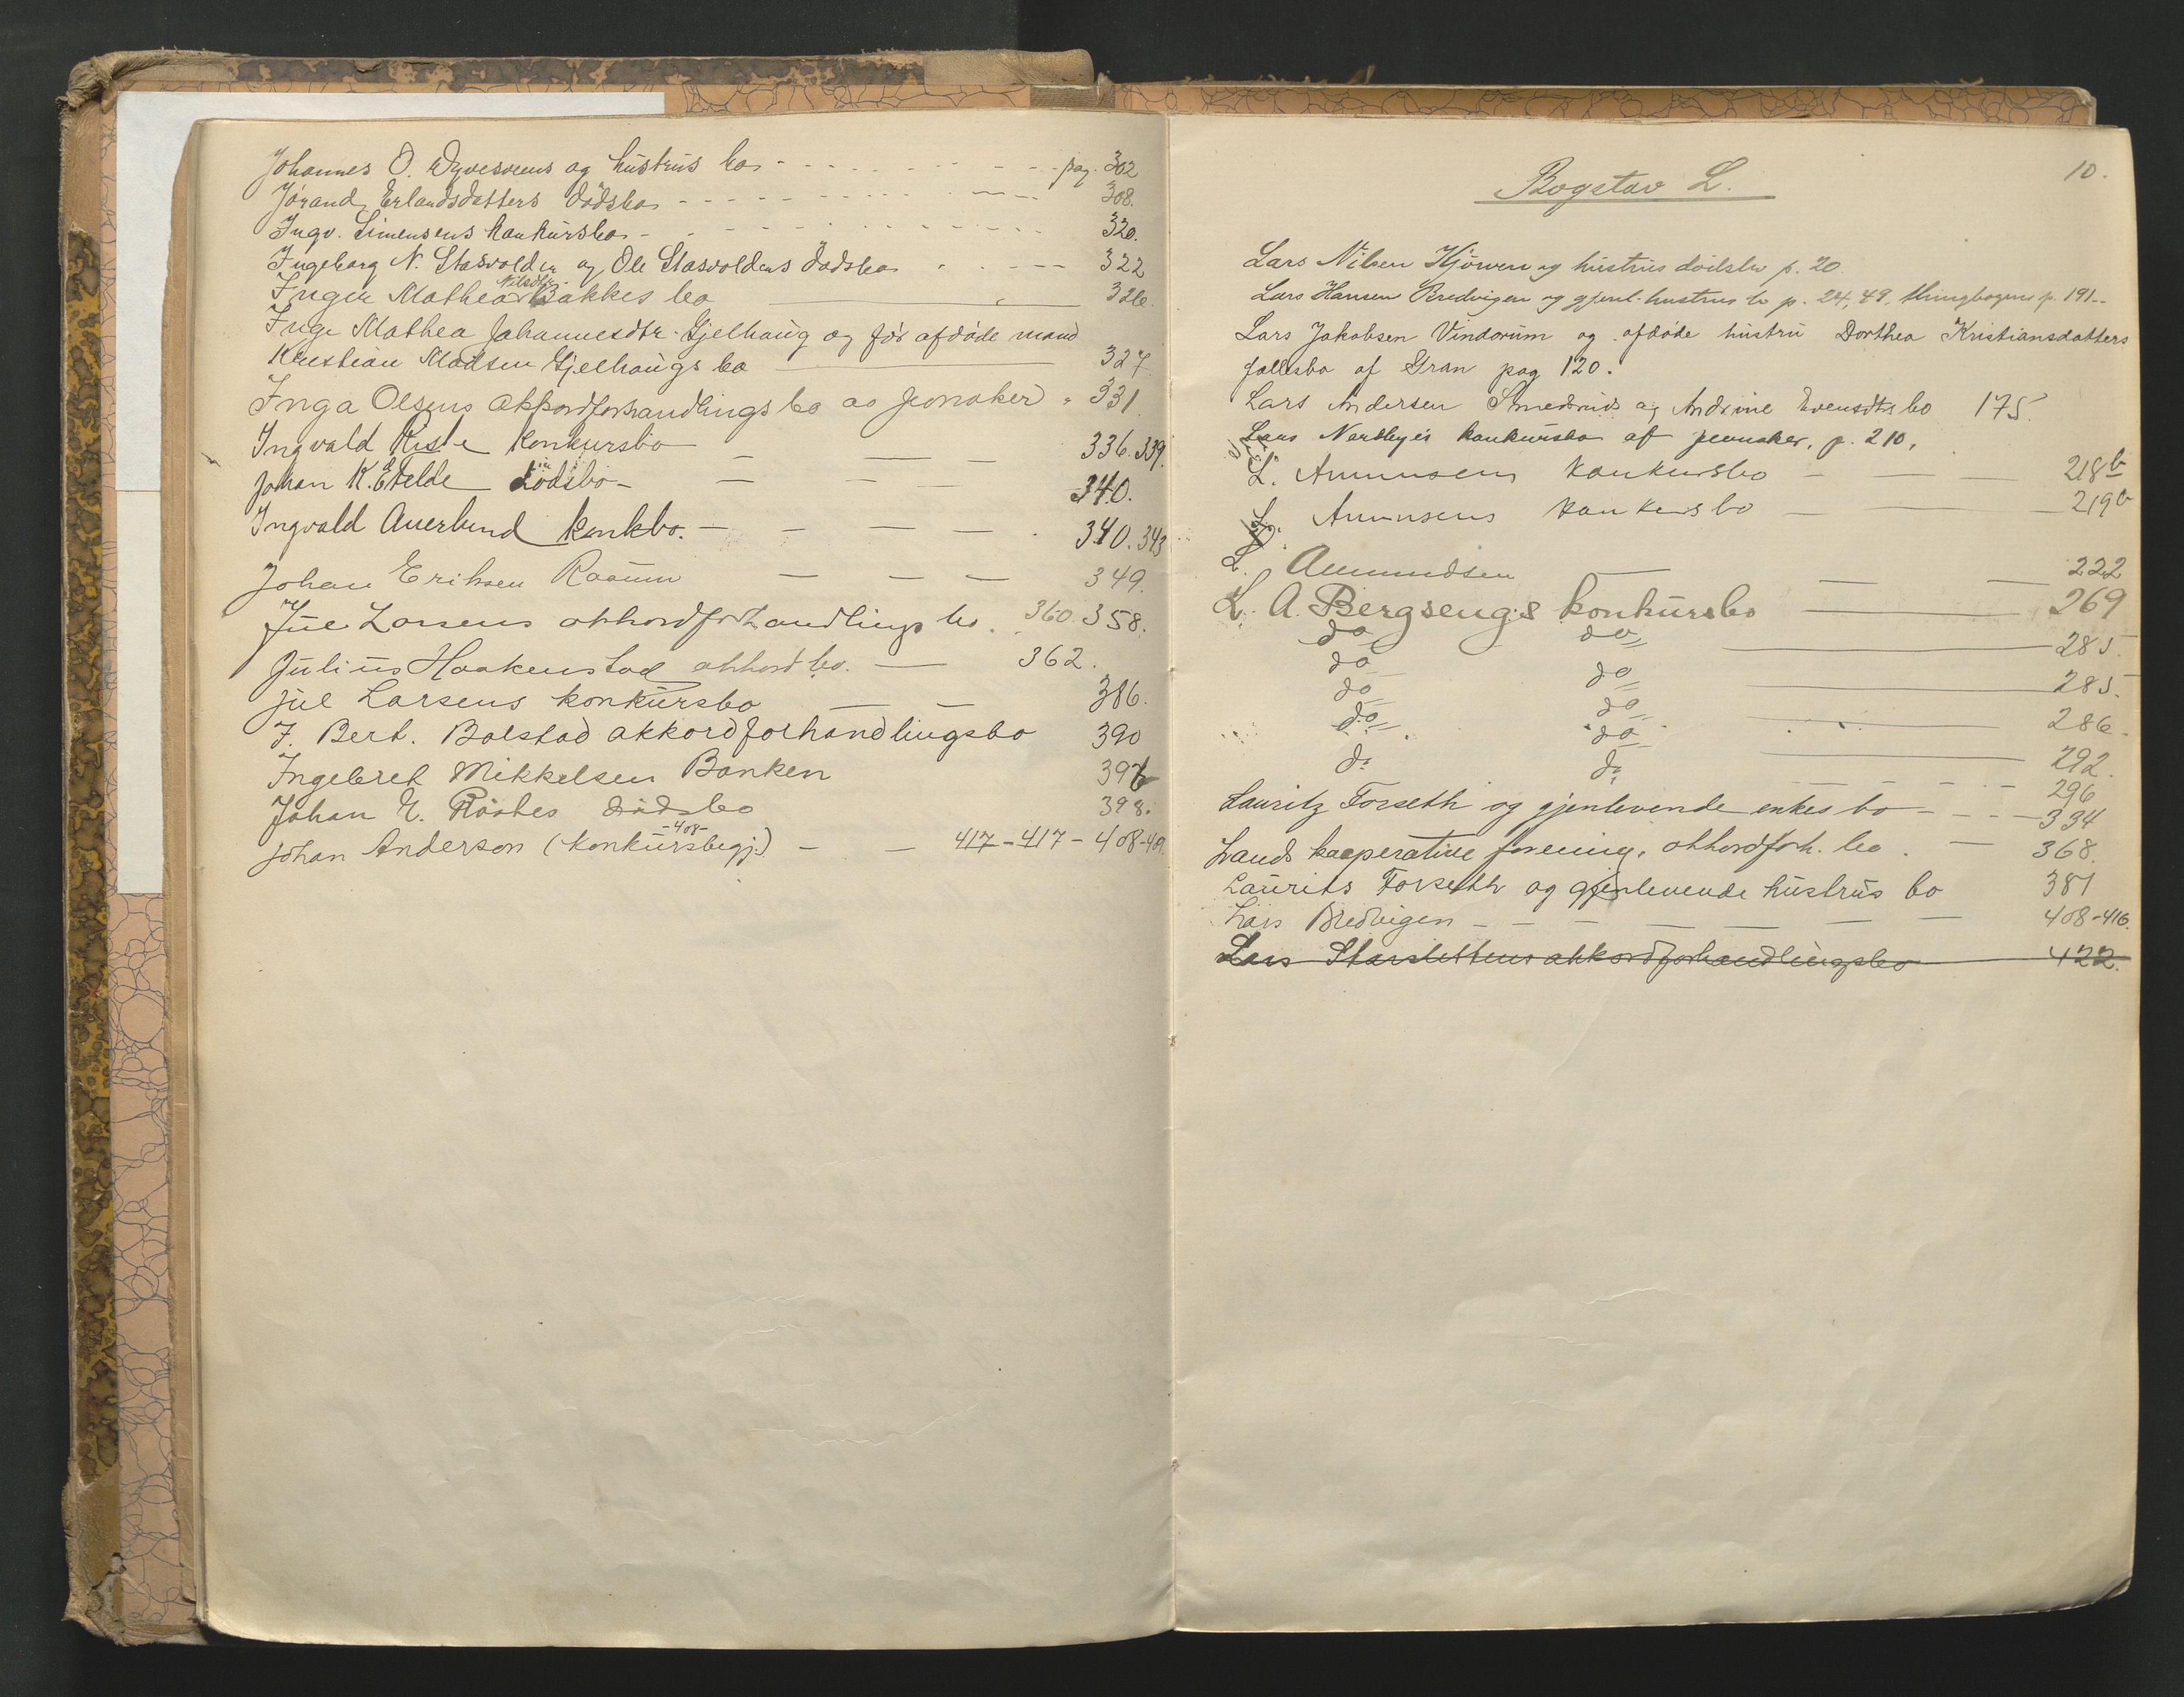 Johannes O. og hustrus bo - - - - - pag. 302
Jórand Erlandsdatters dödsbo - - - - - 308.
Ingv. Simensens konkursbo - - - - - 320.
Ingeborg N. og Ole dödsbo - - - - 322
Nilsdtr.
Inger Mathea Bakkes bo — 326.
Inge Mathea Johannesdtr. Gjelhaug og før afdøde mand
Kristian Madsen Gjelhaugs bo — 327
Inga Olsens akkordforhandlingsbo av Jevnaker " 331.
Ingvald Riste konkursbo — — — 336. 339.
Johan K. dödsbo — — — — 340.
Ingvald Auerlund konkbo. — — — — 340. 343
Johan Eriksen Raaum — — — 349.
Jul Larsens akkordforhandlings bo. 360. 358.
Julius Haakenstad akkord bo. — 362.
Jul Larsens konkursbo — — 386.
J. Bert. Bolstad akkordforhandlingsbo 390
Ingebret Mikkelsen Banken 396
Johan E. Röstes dödsbo 398.
-408-
Johan Anderson (konkursbegj.) — — 417-417-408-409.
10.
Bogstav L.
Lars Nilsen Kjöwen og hustrus dödsbo p. 20.
Lars Hansen Bredvigen og gjenl. hustrus bo p. 24, 49, thingbogens p. 191.
Lars Jakobsen Vindorum og afdøde hustru Dorthea Kristiansdatters
fællesbo af Gran pag 120.
Lars Andersen Smedruds og Andrine Evensdtrs bo 175.
Lars Nordbyes konkursbo af Jevnaker, p. 210,
L. Amunsens konkursbo — — — 218b
L. Amunsens konkursbo — — 219b
L. Amundsen — — — 222
L. A. Bergsengs konkursbo — 269
do do — 285.
do do — 285.
do do — 286.
do do — 292.
do do — 296
Lauritz Forseth og gjenlevende enkes bo - - - - 334
Lands kooperative forening, akkordforh. bo. — 368.
Laurits Forseth og gjenlevende hustrus bo 381
Lars Bredvigen — — — — — 408-416.
Lars Starslettens akkordforhandlingsbo 422.